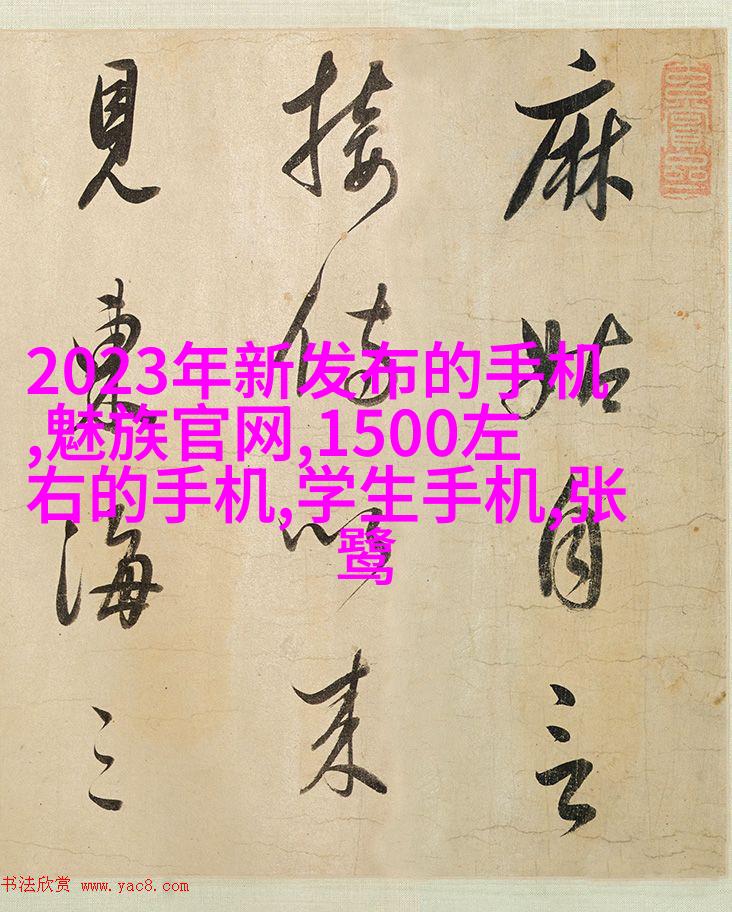 麻姑自言
接侍以来
見東海三
2023年新发布的手机
,魅族官网,1500左
右的手机,学生手机,张
鹭
书法欣赏 www.yac8.com